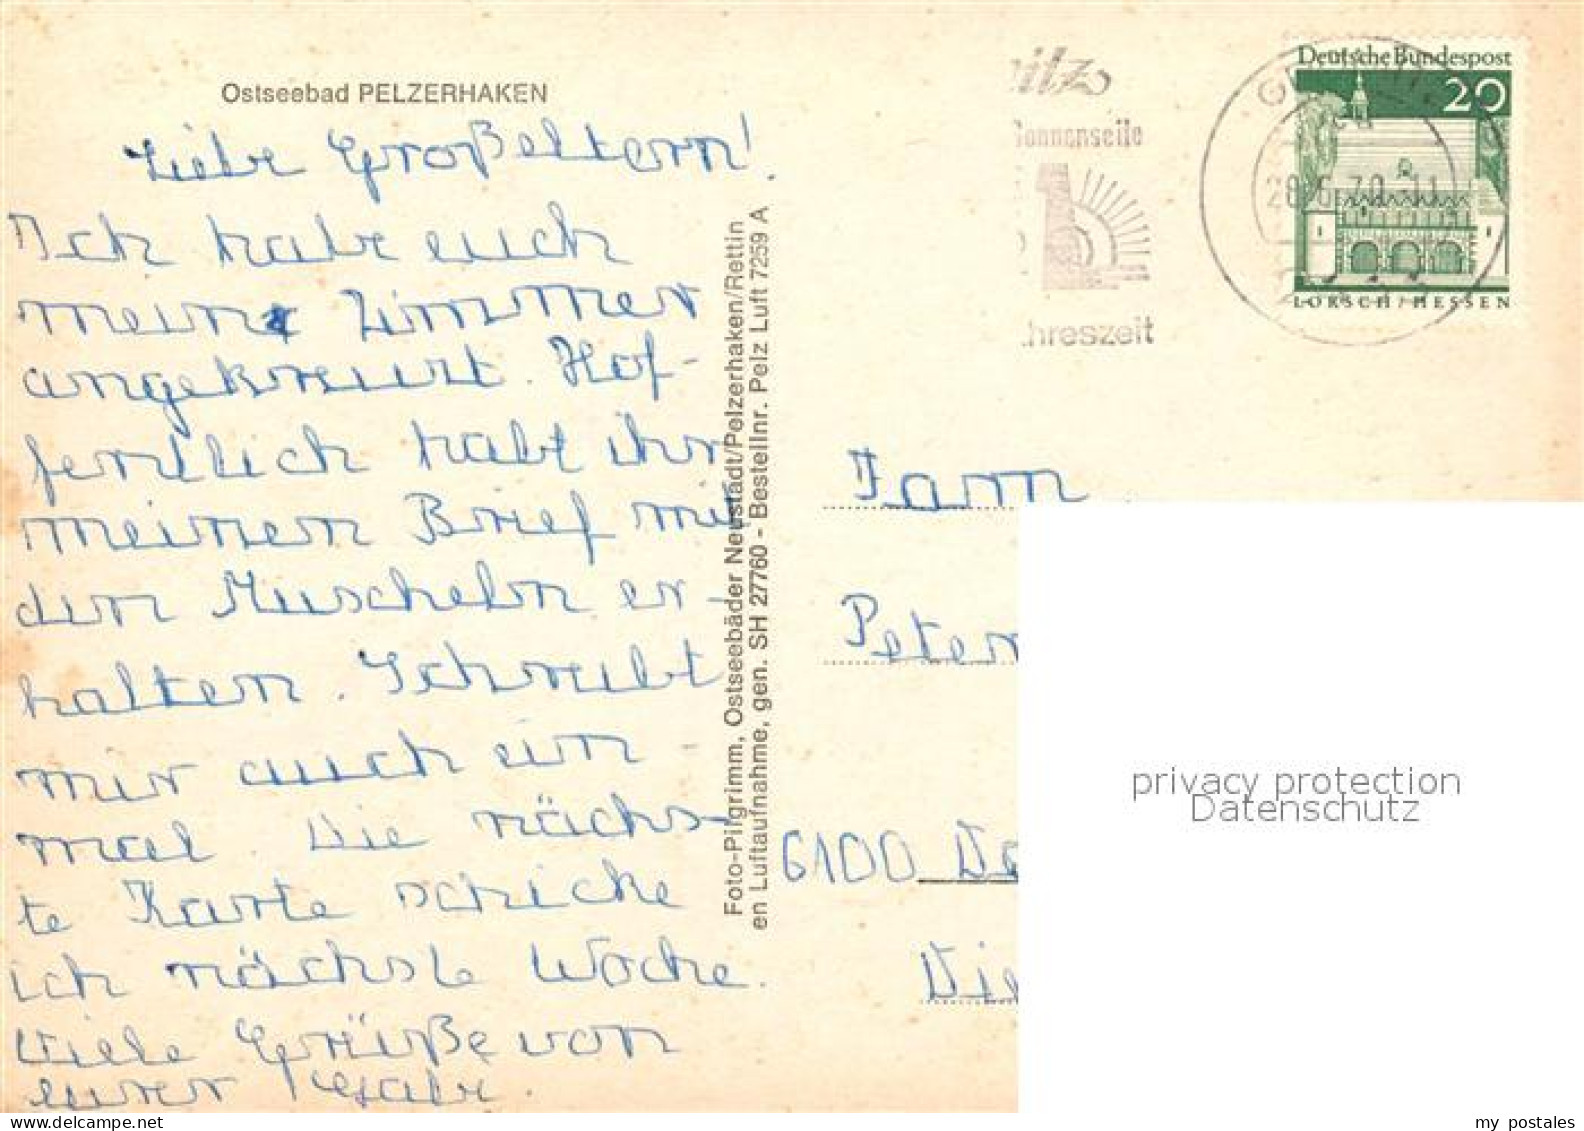 Ostseebad PELZERHAKEN
Liebe Großeltern!
Ich habe euch
mein Zimmer
angekreuzt. Hof-
fentlich habt ihr
meinen Brief mit
den Muscheln er-
halten. Schreibt
mir auch ein-
mal Die nächs-
te Karte schicke
ich nächste Woche.
Viele Grüße von
eurer Gabi.
Foto-Pilgrimm, Ostseebäder Neustadt/Pelzerhaken/Rettin
en Luftaufnahme, gen. SH 27760 - Bestellnr. Pelz Luft 7259 A
nitz
Sonnenseite
hreszeit
Deutsche Bundespost
20
LORSCH/HESSEN
Fam
Peter
6100 Da
Die
privacy protection
Datenschutz
my postales